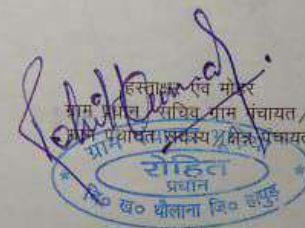 Rohit Kumar
हस्ताक्षर एवं मोहर
ग्राम प्रधान/सचिव ग्राम पंचायत/
ग्राम पंचायत सदस्य/क्षेत्र पंचायत
ग्राम
रोहित
प्रधान
वि० ख० धौलाना जि० हापुड़